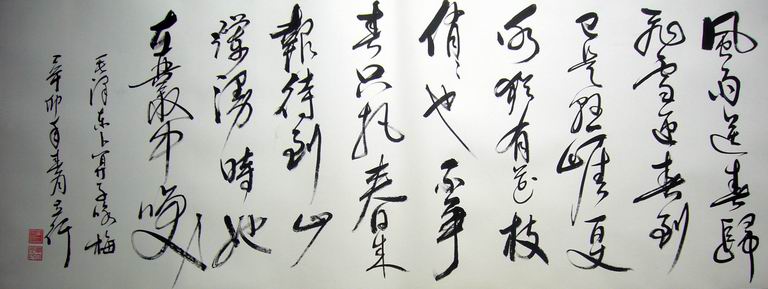 風雨送春歸
飛雪迎春到
已是懸崖百丈
冰猶有花枝
俏〻也不爭
春只把春來
報待到山
爛漫時她
在叢中笑
毛澤東卜算子咏梅
辛卯年春月